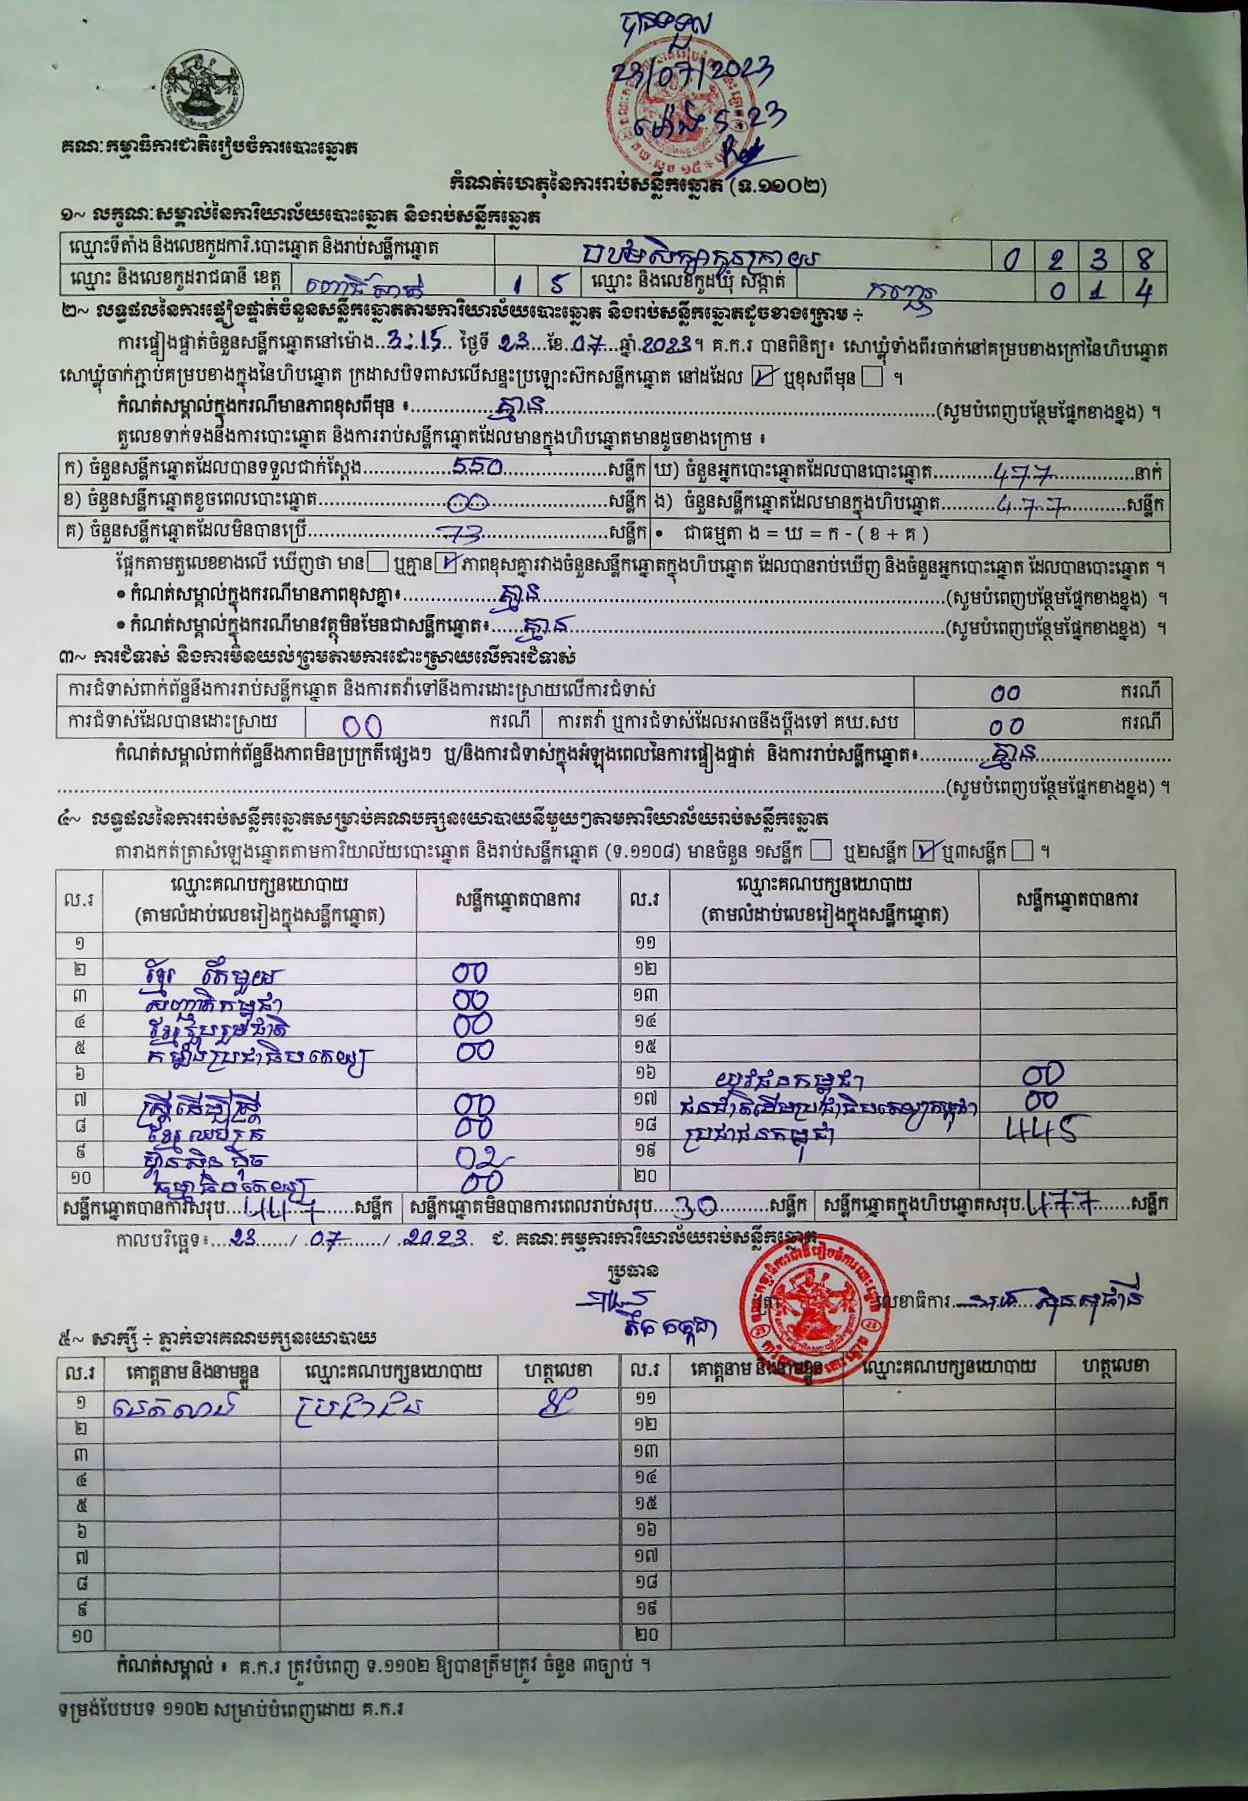 បានទទួល
23/07/2023
ម៉ោង 5:23
គណៈកម្មាធិការជាតិរៀបចំការបោះឆ្នោត
កំណត់ហេតុនៃការរាប់សន្លឹកឆ្នោត (ទ.១១០២)
១~ លក្ខណៈសម្គាល់នៃការិយាល័យបោះឆ្នោត និងរាប់សន្លឹកឆ្នោត
ឈ្មោះទីតាំង និងលេខកូដការិ.បោះឆ្នោត និងរាប់សន្លឹកឆ្នោត 0 2 3 8
ឈ្មោះ និងលេខកូដរាជធានី ខេត្ត ពោធិ៍សាត់ 1 5 ឈ្មោះ និងលេខកូដឃុំ សង្កាត់ 0 1 4
២~ លទ្ធផលនៃការផ្ទៀងផ្ទាត់ចំនួនសន្លឹកឆ្នោតតាមការិយាល័យបោះឆ្នោត និងរាប់សន្លឹកឆ្នោតដូចខាងក្រោម ÷
ការផ្ទៀងផ្ទាត់ចំនួនសន្លឹកឆ្នោតនៅម៉ោង..3:15.. ថ្ងៃទី 23...ខែ.07...ឆ្នាំ.2023។ គ.ក.រ បានពិនិត្យ៖ សោឃ្លុំទាំងពីរចាក់នៅគម្របខាងក្រៅនៃហិបឆ្នោត
សោឃ្លុំចាក់ភ្ជាប់គម្របខាងក្នុងនៃហិបឆ្នោត ក្រដាសបិទពាសលើសន្ទះប្រឡោះស៊កសន្លឹកឆ្នោត នៅដដែល ☑ ឬខុសពីមុន ☐ ។
កំណត់សម្គាល់ក្នុងករណីមានភាពខុសពីមុន ៖..........គ្មាន..........(សូមបំពេញបន្ថែមផ្នែកខាងខ្នង) ។
តួលេខទាក់ទងនឹងការបោះឆ្នោត និងការរាប់សន្លឹកឆ្នោតដែលមានក្នុងហិបឆ្នោតមានដូចខាងក្រោម ៖
ក) ចំនួនសន្លឹកឆ្នោតដែលបានទទួលជាក់ស្តែង..........550..........សន្លឹក ឃ) ចំនួនអ្នកបោះឆ្នោតដែលបានបោះឆ្នោត..........477..........នាក់
ខ) ចំនួនសន្លឹកឆ្នោតខូចពេលបោះឆ្នោត..........00..........សន្លឹក ង) ចំនួនសន្លឹកឆ្នោតដែលមានក្នុងហិបឆ្នោត..........477..........សន្លឹក
គ) ចំនួនសន្លឹកឆ្នោតដែលមិនបានប្រើ..........73..........សន្លឹក • ជាធម្មតា ង = ឃ = ក - ( ខ + គ )
ផ្អែកតាមតួលេខខាងលើ ឃើញថា មាន ☐ ឬគ្មាន ☑ ភាពខុសគ្នារវាងចំនួនសន្លឹកឆ្នោតក្នុងហិបឆ្នោត ដែលបានរាប់ឃើញ និងចំនួនអ្នកបោះឆ្នោត ដែលបានបោះឆ្នោត ។
• កំណត់សម្គាល់ក្នុងករណីមានភាពខុសគ្នា៖..........គ្មាន..........(សូមបំពេញបន្ថែមផ្នែកខាងខ្នង) ។
• កំណត់សម្គាល់ក្នុងករណីមានវត្ថុមិនមែនជាសន្លឹកឆ្នោត៖......គ្មាន..........(សូមបំពេញបន្ថែមផ្នែកខាងខ្នង) ។
៣~ ការជំទាស់ និងការមិនយល់ព្រមតាមការដោះស្រាយលើការជំទាស់
ការជំទាស់ពាក់ព័ន្ធនឹងការរាប់សន្លឹកឆ្នោត និងការតវ៉ាទៅនឹងការដោះស្រាយលើការជំទាស់ 00 ករណី
ការជំទាស់ដែលបានដោះស្រាយ 00 ករណី ការតវ៉ា ឬការជំទាស់ដែលអាចនឹងប្តឹងទៅ គឃ.សប 00 ករណី
កំណត់សម្គាល់ពាក់ព័ន្ធនឹងភាពមិនប្រក្រតីផ្សេងៗ ឬ/និងការជំទាស់ក្នុងអំឡុងពេលនៃការផ្ទៀងផ្ទាត់ និងការរាប់សន្លឹកឆ្នោត៖..........គ្មាន..........
..........(សូមបំពេញបន្ថែមផ្នែកខាងខ្នង) ។
៤~ លទ្ធផលនៃការរាប់សន្លឹកឆ្នោតសម្រាប់គណបក្សនយោបាយនីមួយៗតាមការិយាល័យរាប់សន្លឹកឆ្នោត
តារាងកត់ត្រាសំឡេងឆ្នោតតាមការិយាល័យបោះឆ្នោត និងរាប់សន្លឹកឆ្នោត (ទ.១១០៨) មានចំនួន ១សន្លឹក ☐ ឬ២សន្លឹក ☑ ឬ៣សន្លឹក ☐ ។
ល.រ ឈ្មោះគណបក្សនយោបាយ (តាមលំដាប់លេខរៀងក្នុងសន្លឹកឆ្នោត) សន្លឹកឆ្នោតបានការ ល.រ ឈ្មោះគណបក្សនយោបាយ (តាមលំដាប់លេខរៀងក្នុងសន្លឹកឆ្នោត) សន្លឹកឆ្នោតបានការ
១ ១១
២ ខ្មែរ តែមួយ 00 ១២
៣ សញ្ជាតិកម្ពុជា 00 ១៣
៤ ខ្មែររួបរួមជាតិ 00 ១៤
៥ កម្លាំងប្រជាធិបតេយ្យ 00 ១៥
៦ ១៦ យុវជនកម្ពុជា 00
៧ ស្ត្រីដើម្បីស្ត្រី 00 ១៧ ជនជាតិដើមប្រជាធិបតេយ្យកម្ពុជា 00
៨ ខ្មែរឈប់ក្រ 00 ១៨ ប្រជាជនកម្ពុជា 445
៩ ហ៊្វុនស៊ិនប៉ិច 02 ១៩
១០ ធម្មាធិបតេយ្យ 00 ២០
សន្លឹកឆ្នោតបានការសរុប...447......សន្លឹក សន្លឹកឆ្នោតមិនបានការពេលរាប់សរុប...30......សន្លឹក សន្លឹកឆ្នោតក្នុងហិបឆ្នោតសរុប.477......សន្លឹក
កាលបរិច្ឆេទ៖...23....../ .07......../ .2023. ជ. គណៈកម្មការការិយាល័យរាប់សន្លឹកឆ្នោត
ប្រធាន
ត្រា លេខាធិការ
៥~ សាក្សី ÷ ភ្នាក់ងារគណបក្សនយោបាយ
ល.រ គោត្តនាម និងនាមខ្លួន ឈ្មោះគណបក្សនយោបាយ ហត្ថលេខា ល.រ គោត្តនាម និងនាមខ្លួន ឈ្មោះគណបក្សនយោបាយ ហត្ថលេខា
១ ប្រជាជន ១១
២ ១២
៣ ១៣
៤ ១៤
៥ ១៥
៦ ១៦
៧ ១៧
៨ ១៨
៩ ១៩
១០ ២០
កំណត់សម្គាល់ ៖ គ.ក.រ ត្រូវបំពេញ ទ.១១០២ ឱ្យបានត្រឹមត្រូវ ចំនួន ៣ច្បាប់ ។
ទម្រង់បែបបទ ១១០២ សម្រាប់បំពេញដោយ គ.ក.រ